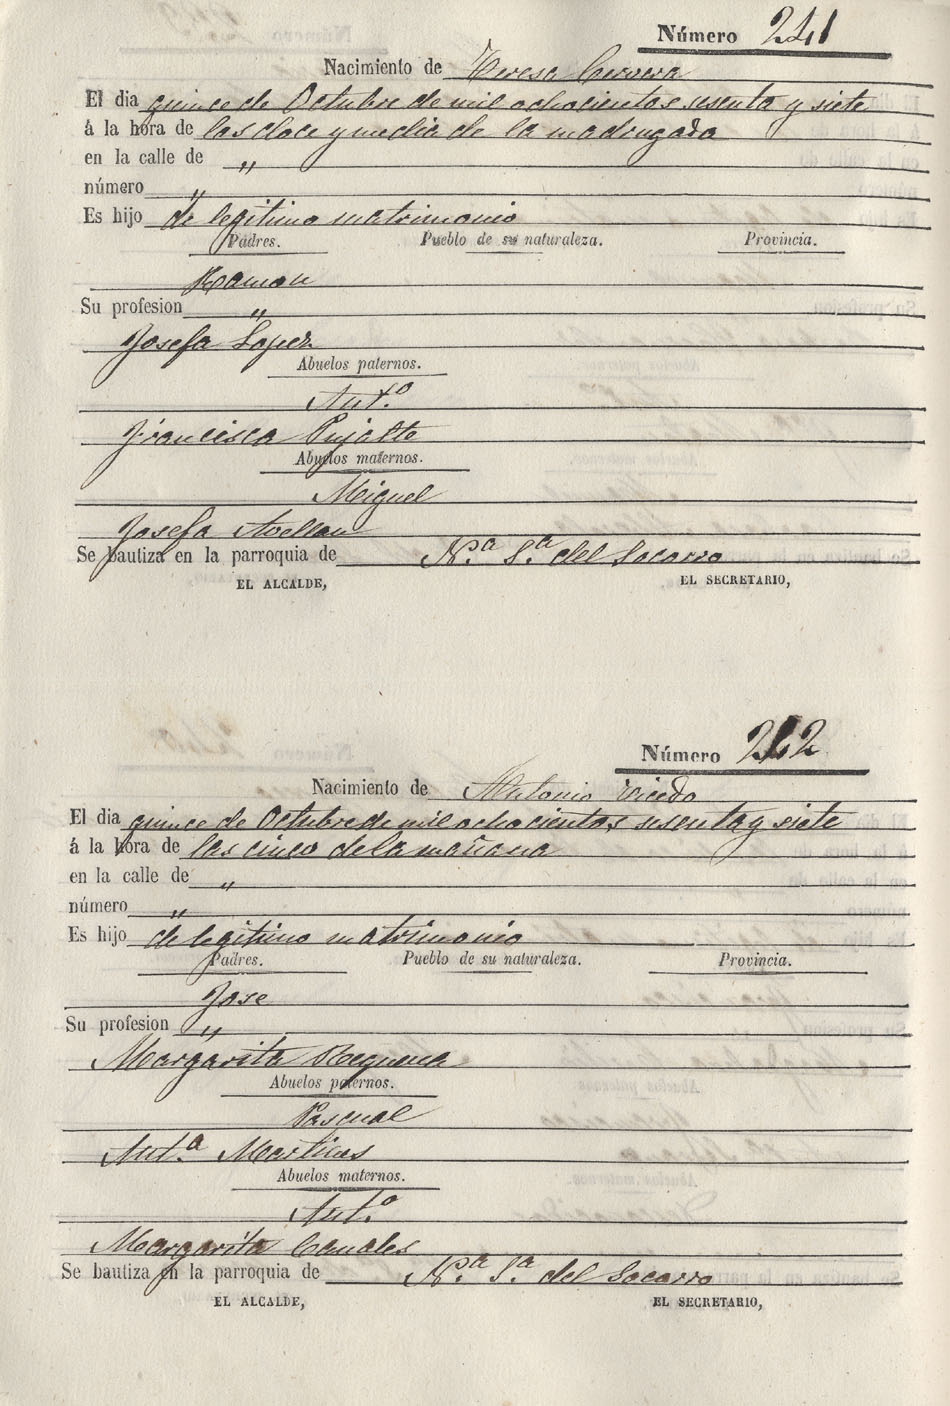 Número 241
Nacimiento de Teresa Cervera
El dia quince de Octubre de mil ochocientos sesenta y siete
á la hora de las doce y media de la madrugada
en la calle de "
número "
Es hijo de legitimo matrimonio
Padres. Pueblo de su naturaleza. Provincia.
Ramon
Su profesion "
Josefa Lopez
Abuelos paternos.
Ant.º
Francisca Pujalte
Abuelos maternos.
Miguel
Josefa Avellan
Se bautiza en la parroquia de N.ª S.ª del Socorro
EL ALCALDE, EL SECRETARIO,
Número 242
Nacimiento de Antonio Vicedo
El dia quince de Octubre de mil ochocientos sesenta y siete
á la hora de las cinco de la mañana
en la calle de "
número "
Es hijo de legitimo matrimonio
Padres. Pueblo de su naturaleza. Provincia.
Jose
Su profesion "
Margarita Requena
Abuelos paternos.
Pascual
Ant.ª Martines
Abuelos maternos.
Ant.º
Margarita Canales
Se bautiza en la parroquia de N.ª S.ª del Socorro
EL ALCALDE, EL SECRETARIO,